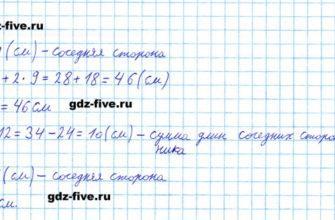 dz-five.ru gdz-five.ru
(см) – соседняя сторона
+ 2 · 9 = 28 + 18 = 46 (см)
= 46 см gdz-five.ru
12 = 34 – 24 = 10 (см) – сумма длин соседних сторо
ника
(см) – соседняя сторона
gdz-five.ru
см.